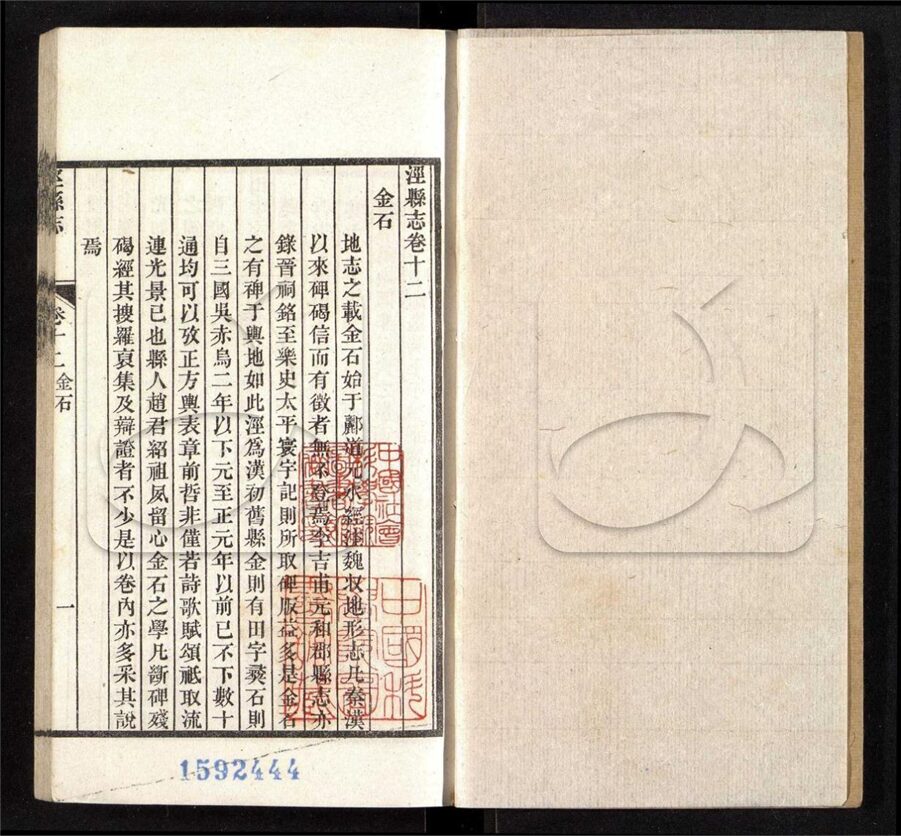 涇縣志卷十二
金石
地志之載金石始于酈道元水經注魏收地形志凡秦漢
以來碑碣信而有徵者無不登焉李吉甫元和郡縣志亦
錄晉祠銘至樂史太平寰宇記則所取碑版益多是金石
之有裨于輿地如此涇爲漢初舊縣金則有田字彞石則
自三國吳赤烏二年以下元至正元年以前已不下數十
通均可以攷正方輿表章前哲非僅若詩歌賦頌祗取流
連光景已也縣人趙君紹祖夙留心金石之學凡斷碑殘
碣經其搜羅裒集及辯證者不少是以卷內亦多采其說
焉
涇縣志
卷十二 金石
一
1592444